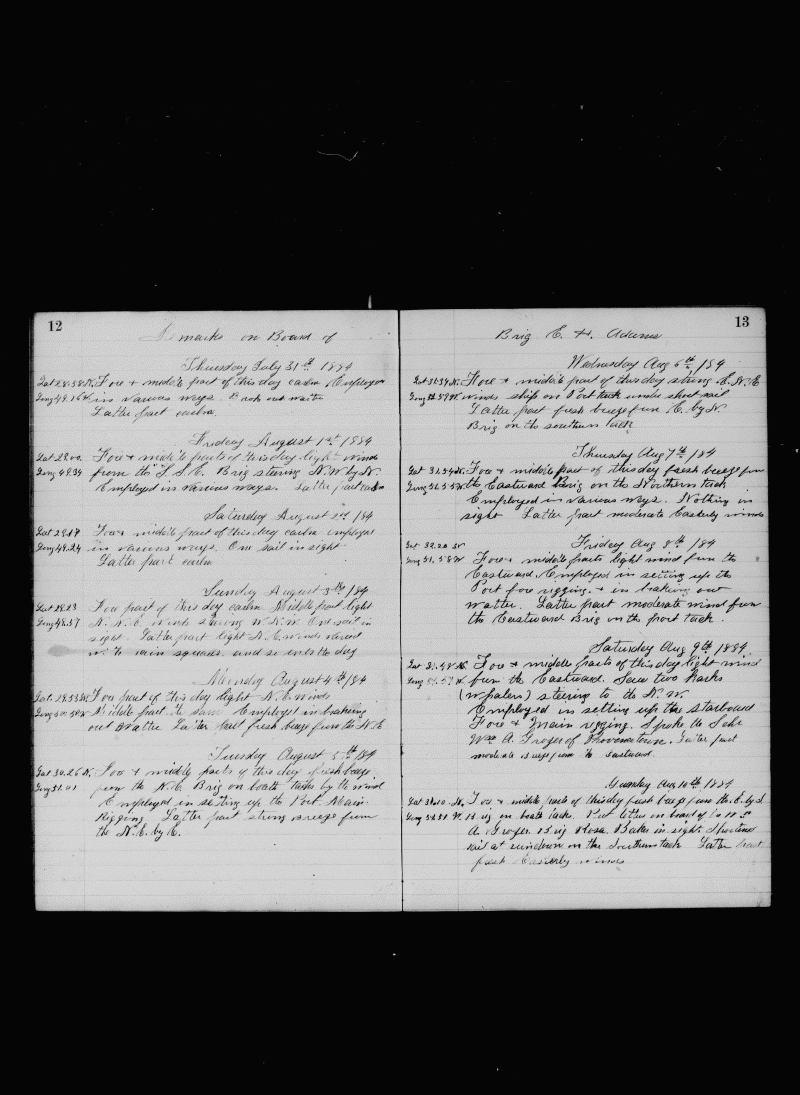 12
Remarks on Board of
Thursday July 31st 1884
Lat 28.38 N. Fore + middle part of this day calm Employed
Long 49.16 W in various ways. Broke out water
Latter part calm.
Friday August 1st 1884
Lat 29.00. Fore + middle parts of this day light winds
Long 49.34 from the S.S.E. Brig steering N.W. by N.
Employed in various ways. Latter part calm
Saturday August 2nd /84
Lat 29.17 Fore + middle part of this day calm employed
Long 49.24 in various ways. One sail in sight
Latter part calm
Sunday August 3rd /84
Lat 28.23 Fore part of this day calm Middle part light
Long 48.57 N.N.E. winds steering W.N.W. One sail in
sight. Latter part light N.E. winds
with rain squalls. and so ends the day
Monday August 4th /84
Lat. 29.53 N. Fore part of this day light N.E. winds
Long 50.50 W Middle part the same Employed in breaking
out Watter Latter part fresh breeze from the N.E
Tuesday August 5th /84
Lat 30.26 N. Fore + middle parts of this day fresh breeze
Long 51.01 from the N.E. Brig on boath tacks by the wind
Employed in setting up the Port Main
Rigging Latter part strong breeze from
the N.E. by E.
13
Brig E. H. Adams
Wednesday Aug 6th /84
Lat 31.34 N. Fore + middle part of this day strong E.N.E
winds ship on Port tack under short sail
Latter part fresh breeze from E. by N.
Brig on the southern tack
Thursday Aug 7th /84
Lat 31.54 N. Fore + middle part of this day fresh breeze from
Long 51.55 W the Eastward Brig on the Northern tack
Employed in various ways. Nothing in
sight Latter part moderate Easterly winds
Friday Aug 8th /84
Lat 32.20 N
Long 51.58 W Fore + middle parts light wind from the
Eastward. Employed in setting up the
Port fore rigging. + in braking out
watter. Latter part moderate wind from
the Eastward Brig on the port tack.
Saturday Aug 9th 1884.
Lat 31.48 N. Fore + middle parts of this day light wind
from the Eastward. Saw two barks
(whalers) steering to the N.W.
Employed in setting up the starboard
Fore + Main rigging. Spoke the Sch
Wm A. Grozer of Provincetown. Latter part
moderate breeze from the Eastward.
Sunday Aug 10th 1884
Fore + middle parts of this day fresh breeze from the E. by S.
Brig on boath tacks. Put letters on board of Sch W
A Grozer. Brig Rosa Baker in sight. Shortend
sail at sundown on the Southern tack Latter part
fresh Easterly winds